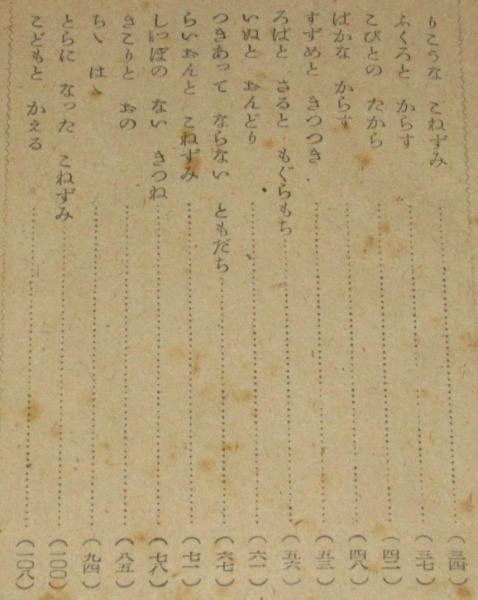 りこうな こねずみ……(三四)
ふくろと からす……(三七)
こびとの たから……(四二)
ばかな からす……(四八)
すずめと きつつき……(五三)
ろばと さると もぐらもち……(五六)
いぬと おんどり……(六一)
つきあって ならない ともだち……(六七)
らいおんと こねずみ……(七一)
しっぽの ない きつね……(七八)
きこりと おの……(八五)
ちゝ はゝ……(九四)
とらに なった こねずみ……(一〇〇)
こどもと かえる……(一〇八)